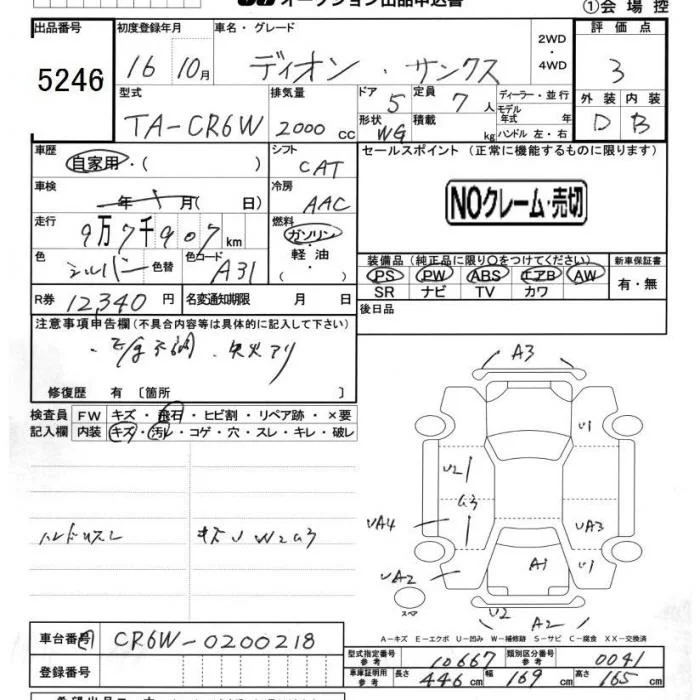 オークション出品申込書
①会場控
出品番号 初度登録年月 車名・グレード 評価点
5246 16 10月 ディオン・サンクス 2WD・4WD 3
型式 排気量 ドア 5 定員 7人 ディーラー・並行 外装 内装
TA-CR6W 2000cc 形状 WG 積載 kg モデル年式 年 ハンドル 左・右 D B
車歴 シフト セールスポイント (正常に機能するものに限ります)
自家用・( ) CAT
車検 年 月( 日) 冷房 AAC NOクレーム・売切
走行 9万7千907km 燃料 ガソリン・軽油・( )
色 シルバー 色替 色コード A31
装備品(純正品に限り○をつけてください) 新車保証書
PS PW ABS エアB AW 有・無
SR ナビ TV カワ
R券 12,340円 名変通知期限 月 日 後日品
注意事項申告欄(不具合内容等は具体的に記入して下さい)
不調
修復歴 有 〔箇所 〕
検査員 FW キズ・飛石・ヒビ割・リペア跡・×要
記入欄 内装 キズ・汚レ・コゲ・穴・スレ・キレ・破レ
A3
U1
U2
G3
UA4
UA3
A1
U1
UA2
スペア
U2
A2
ハンドルスレ キズU W2G3
A-キズ E-エクボ U-凹み W-補修跡 S-サビ C-腐食 XX-交換済
車台番号 CR6W-0200218
型式指定番号 参考 10667 類別区分番号 参考 0041
登録番号
車庫証明用 参考 長さ 446cm 幅 169cm 高さ 165cm